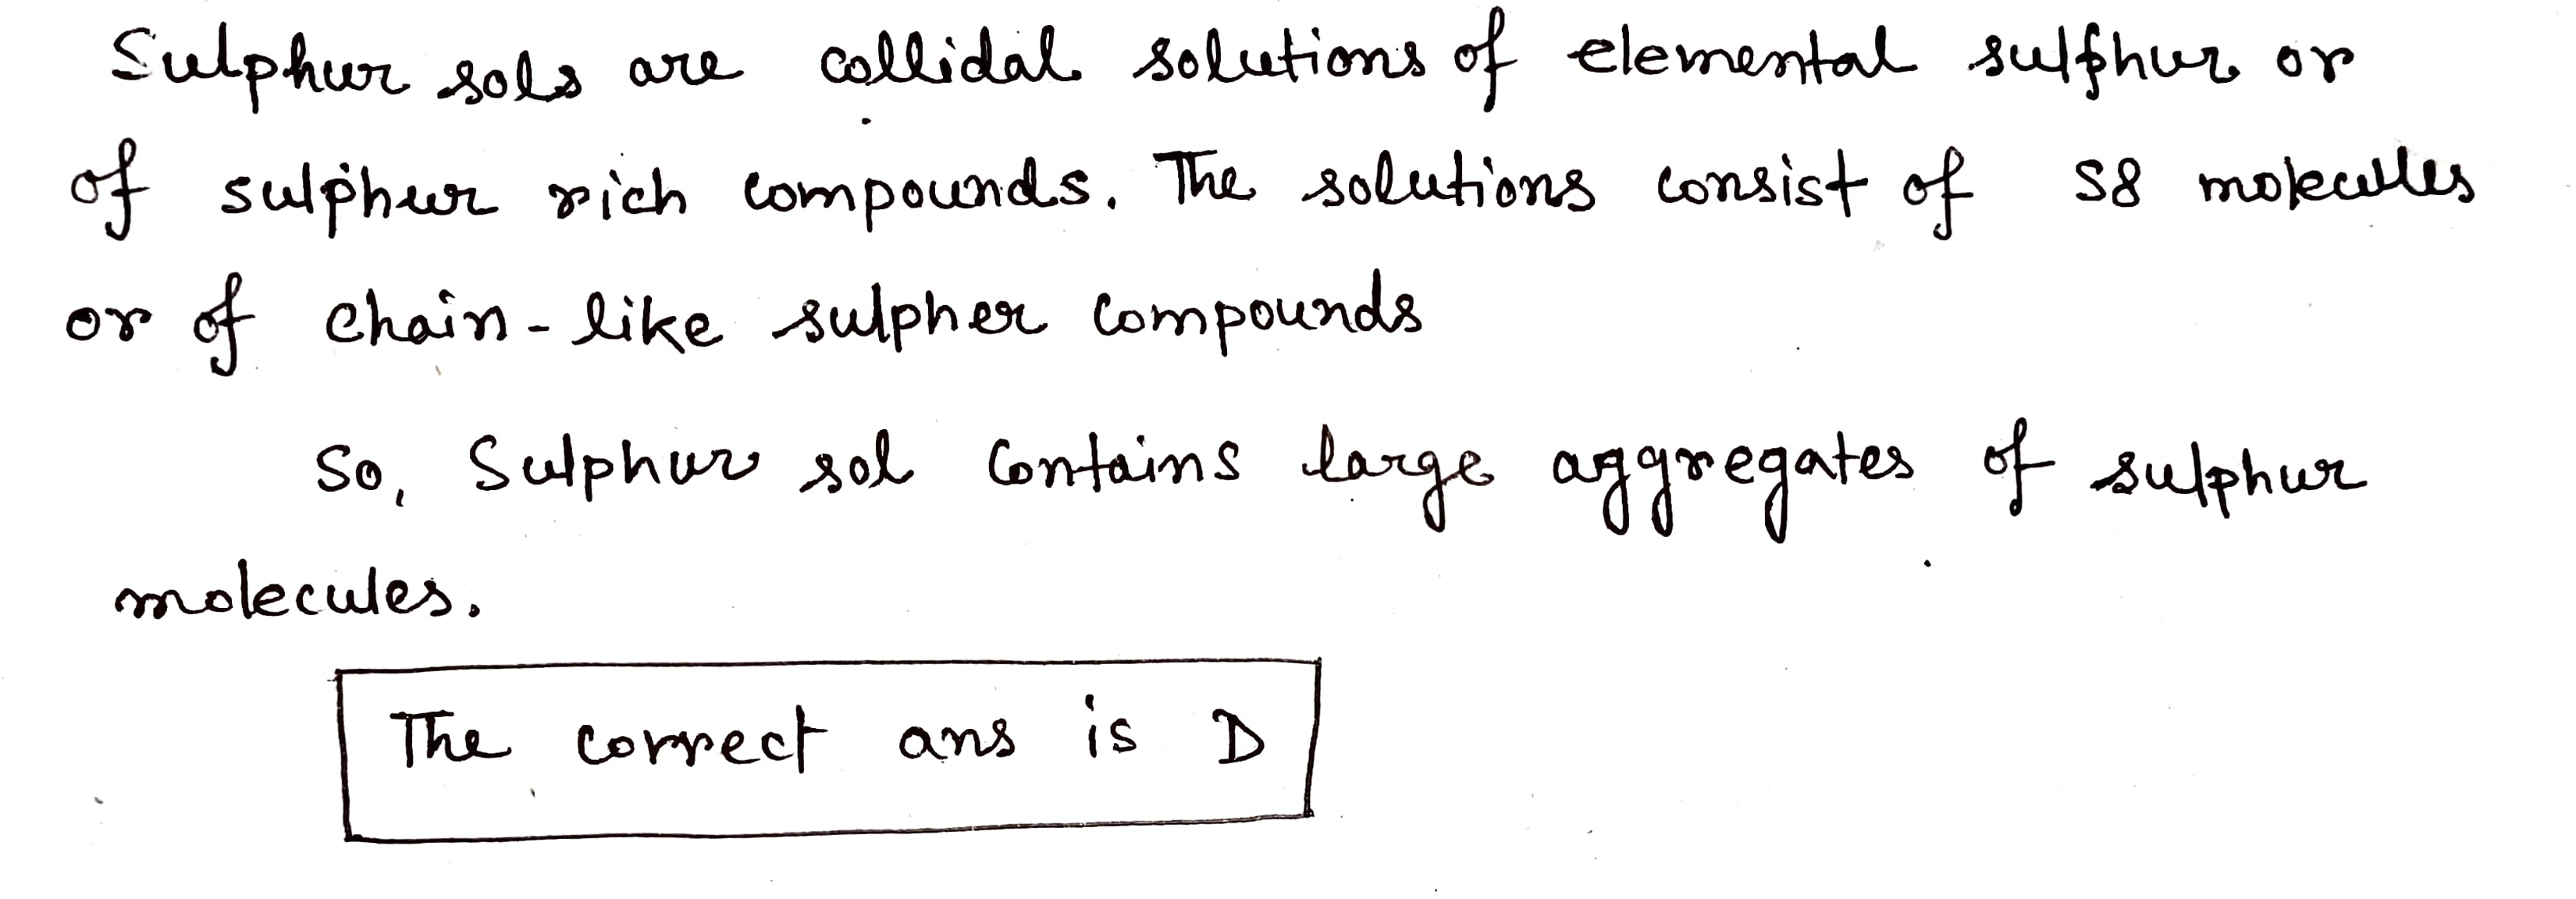 Sulphur sols are collidal solutions of elemental sulphur or
of sulphur rich compounds. The solutions consist of S8 molecules
or of chain-like sulpher compounds
So, Sulphur sol contains large aggregates of sulphur
molecules.
The correct ans is D